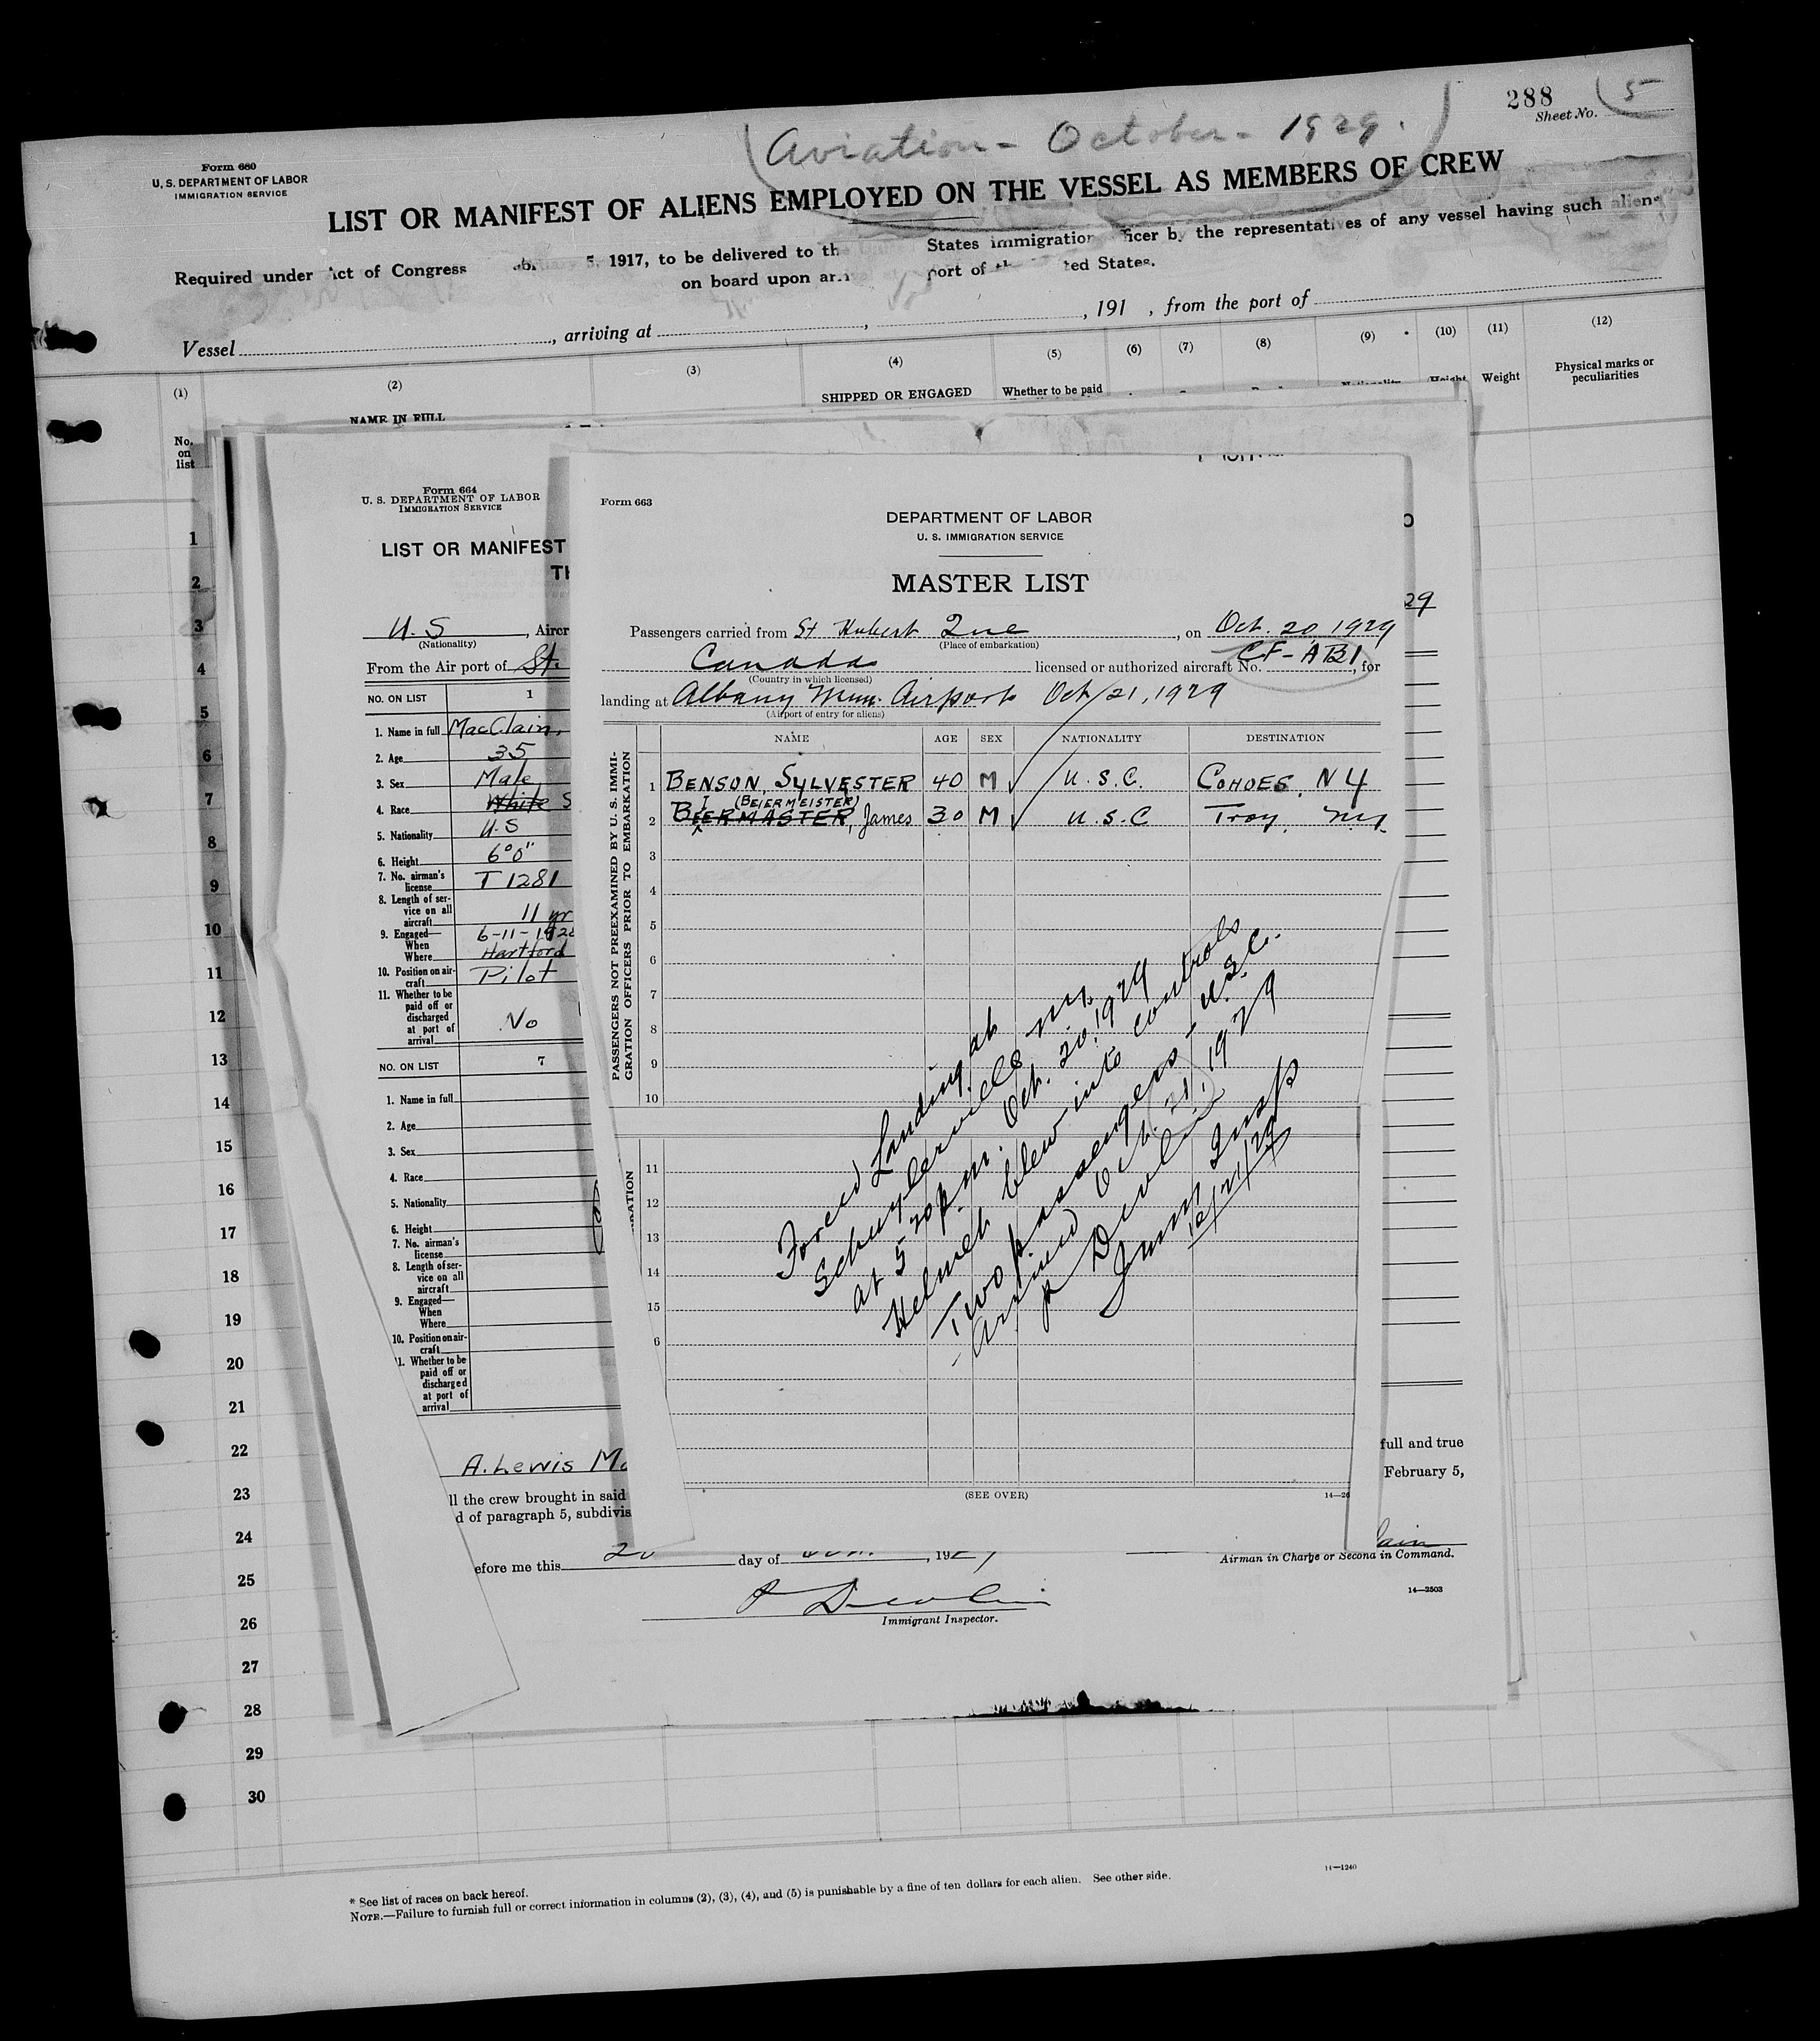 288
Sheet No. 5
(Aviation - October - 1929.)
Form 680
U. S. DEPARTMENT OF LABOR
IMMIGRATION SERVICE
LIST OR MANIFEST OF ALIENS EMPLOYED ON THE VESSEL AS MEMBERS OF CREW
Required under Act of Congress 5, 1917, to be delivered to the States immigration officer by the representatives of any vessel having such aliens
on board upon port of the United States.
Vessel , arriving at , , 191 , from the port of
(1) (2) (3) (4) (5) (6) (7) (8) (9) (10) (11) (12)
No. on list
NAME IN FULL
SHIPPED OR ENGAGED
Whether to be paid
Height
Weight
Physical marks or peculiarities
1
2
3
4
5
6
7
8
9
10
11
12
13
14
15
16
17
18
19
20
21
22
23
24
25
26
27
28
29
30
Form 664
U. S. DEPARTMENT OF LABOR
IMMIGRATION SERVICE
LIST OR MANIFEST
U.S
(Nationality)
From the Air port of St.
NO. ON LIST 1
1. Name in full MacClain,
2. Age 35
3. Sex Male
4. Race White S
5. Nationality U.S
6. Height 6°0"
7. No. airman's license T 1281
8. Length of service on all aircraft 11 yr
9. Engaged—
When 6-11-192
Where Hartford
10. Position on aircraft Pilot
11. Whether to be paid off or discharged at port of arrival No
NO. ON LIST 7
1. Name in full
2. Age
3. Sex
4. Race
5. Nationality
6. Height
7. No. airman's license
8. Length of service on all aircraft
9. Engaged—
When
Where
10. Position on aircraft
1. Whether to be paid off or discharged at port of arrival
A. Lewis Ma
ll the crew brought in said
d of paragraph 5, subdivis
efore me this 20 day of , 192
Immigrant Inspector.
29
full and true
February 5,
Airman in Charge or Second in Command.
14—2503
Form 663
DEPARTMENT OF LABOR
U. S. IMMIGRATION SERVICE
MASTER LIST
Passengers carried from St Hubert Que , on Oct. 20, 1929
(Place of embarkation)
Canada licensed or authorized aircraft No. CF-ABI, for
(Country in which licensed)
landing at Albany Mun. Airport Oct/21, 1929
(Airport of entry for aliens)
NAME AGE SEX NATIONALITY DESTINATION
PASSENGERS NOT PREEXAMINED BY U. S. IMMIGRATION OFFICERS PRIOR TO EMBARKATION
1 BENSON, SYLVESTER 40 M U.S.C. COHOES. NY
(BEIERMEISTER)
2 BEIERMASTER, James 30 M U.S.C Troy. NY.
3
4
5
6
7
8
9
10
RATION
11
12
13
14
15
6
Forced Landing at
Schuylerville NY.
at 5 20 p.m. Oct. 20, 1929
Helmet blew into controls
Two passengers - U.S.C.
- arrived Oct. 21, 1929
P Devlin
Immt Insp
10/21/29
(SEE OVER)
14—26
* See list of races on back hereof.
NOTE.—Failure to furnish full or correct information in columns (2), (3), (4), and (5) is punishable by a fine of ten dollars for each alien. See other side.
14—1240